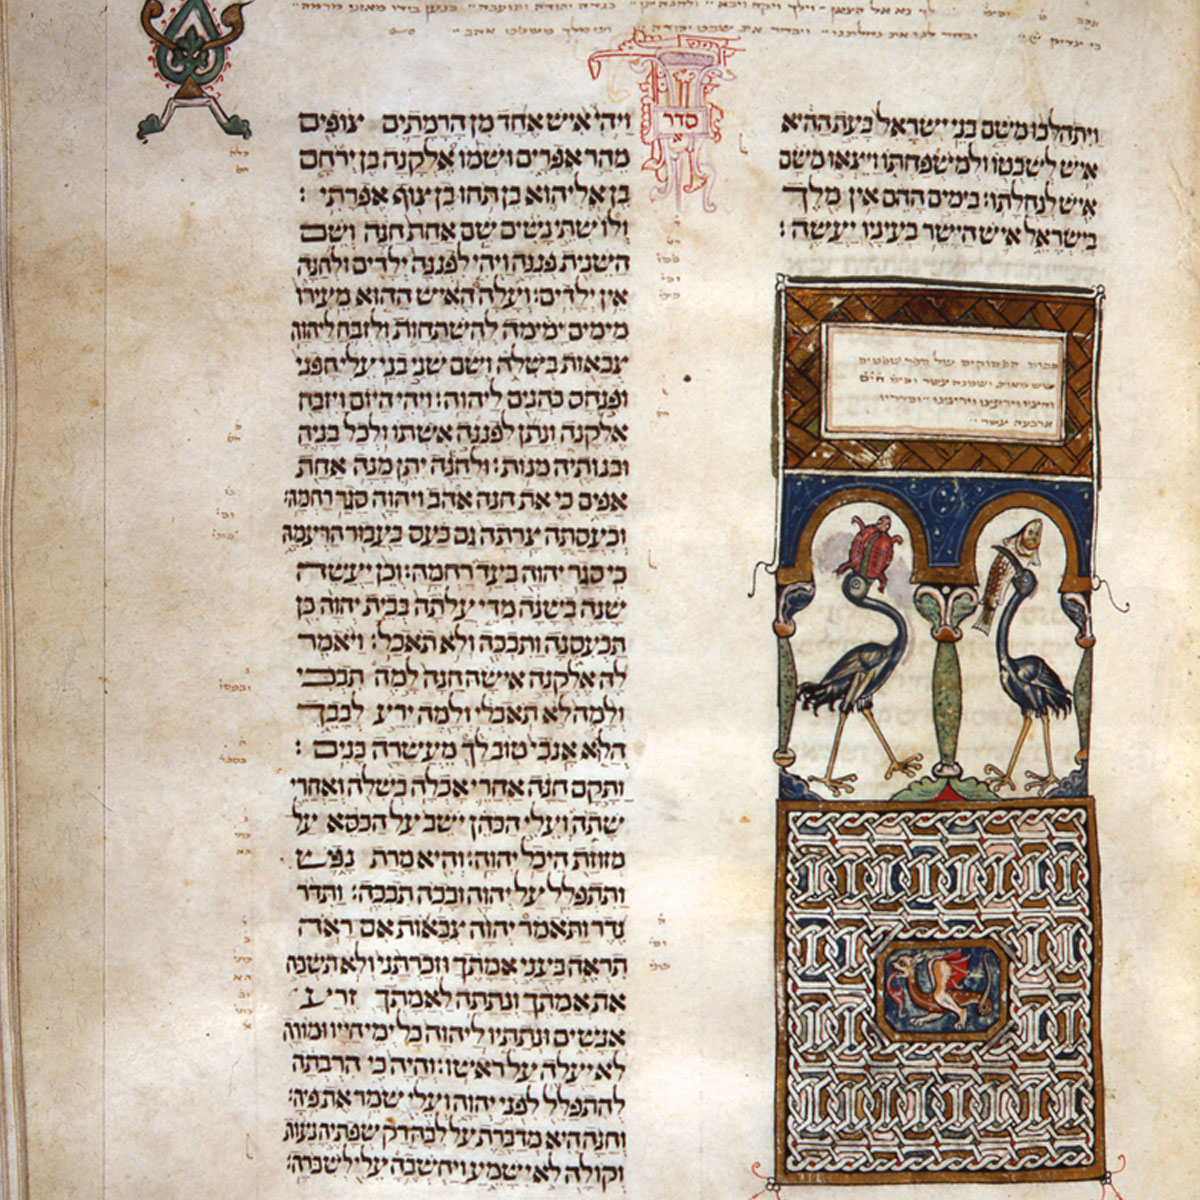 לך נא אל הצאן וילך ויקח ויבא כנען בידו מאזני מרמה
יבחר לנו את נחלתנו ויבחר את שבט יהודה
ויתהלכו משם בני ישראל בעת ההיא
איש לשבטו ולמשפחתו ויצאו משם
איש לנחלתו׃ בימים ההם אין מלך
בישראל איש הישר בעיניו יעשה׃
סכום הפסוקים של ספר שפטים
שש מאות ושמונה עשר
וסדריו
ארבעה עשר
סדר
א
ויהי איש אחד מן הרמתים צופים
מהר אפרים ושמו אלקנה בן ירחם
בן אליהוא בן תחו בן צוף אפרתי׃
ולו שתי נשים שם אחת חנה ושם
השנית פננה ויהי לפננה ילדים ולחנה
אין ילדים׃ ועלה האיש ההוא מעירו
מימים ימימה להשתחות ולזבח ליהוה
צבאות בשלה ושם שני בני עלי חפני
ופנחס כהנים ליהוה׃ ויהי היום ויזבח
אלקנה ונתן לפננה אשתו ולכל בניה
ובנותיה מנות׃ ולחנה יתן מנה אחת
אפים כי את חנה אהב ויהוה סגר רחמה׃
וכיעסתה צרתה גם כעס בעבור הרעמה
כי סגר יהוה בעד רחמה׃ וכן יעשה
שנה בשנה מדי עלתה בבית יהוה כן
תכעסנה ותבכה ולא תאכל׃ ויאמר
לה אלקנה אישה חנה למה תבכי
ולמה לא תאכלי ולמה ירע לבבך
הלא אנכי טוב לך מעשרה בנים׃
ותקם חנה אחרי אכלה בשלה ואחרי
שתה ועלי הכהן ישב על הכסא על
מזוזת היכל יהוה׃ והיא מרת נפש
ותתפלל על יהוה ובכה תבכה׃ ותדר
נדר ותאמר יהוה צבאות אם ראה
תראה בעני אמתך וזכרתני ולא תשכח
את אמתך ונתתה לאמתך זרע
אנשים ונתתיו ליהוה כל ימי חייו ומורה
לא יעלה על ראשו׃ והיה כי הרבתה
להתפלל לפני יהוה ועלי שמר את פיה׃
וחנה היא מדברת על לבה רק שפתיה נעות
וקולה לא ישמע ויחשבה עלי לשכרה׃